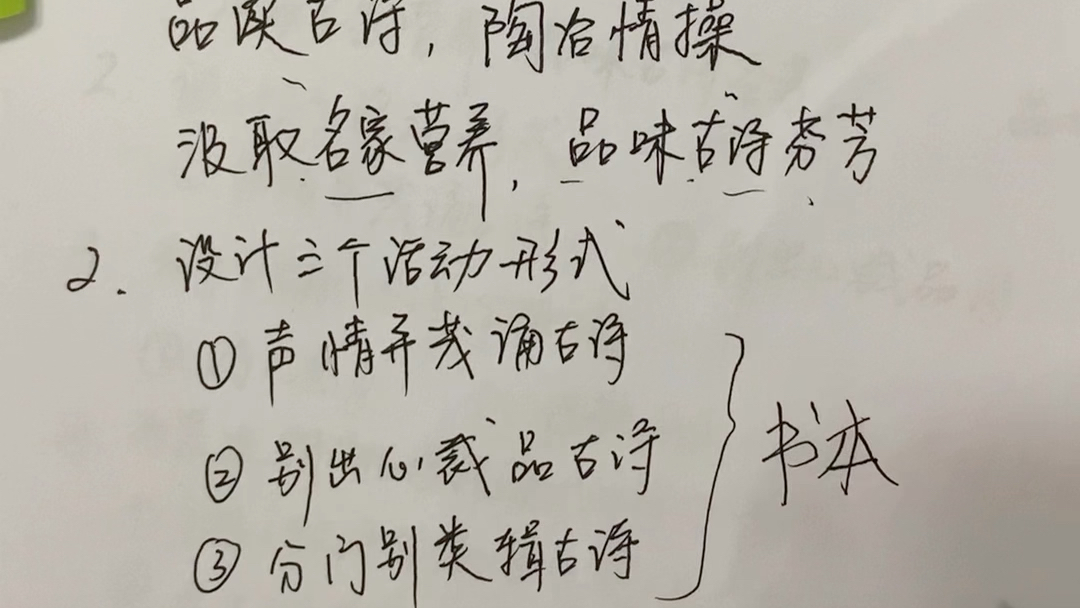 品味古诗，陶冶情操
汲取名家营养，品味古诗芬芳
2. 设计三个活动形式
① 声情并茂诵古诗
② 别出心裁品古诗
③ 分门别类辑古诗
书本